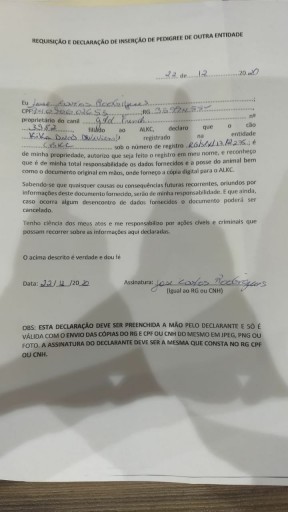 REQUISIÇÃO E DECLARAÇÃO DE INSERÇÃO DE PEDIGREE DE OUTRA ENTIDADE
22 de 12 2020
Eu
CPF RG
proprietário do canil
titular ao ALKC, declaro que o cão
registrado na entidade
sob o número de registro
de minha propriedade, autorizo que seja feito o registro em meu nome, e reconheço
que é de minha total responsabilidade os dados fornecidos e a posse do animal bem
como o documento original em mãos, onde forneço a cópia digital para o ALKC.
Sabendo-se que quaisquer causas ou consequências futuras recorrentes, oriundos por
informações deste documento fornecido, serão de minha responsabilidade. E que ainda,
caso ocorra algum desencontro de dados fornecidos o documento poderá ser
cancelado.
Tenho ciência dos meus atos e me responsabilizo por ações cíveis e criminais que
possam recorrer sobre as informações aqui declaradas.
O acima descrito é verdade e dou fé
Data: 22/12/2020 Assinatura:
(Igual ao RG ou CNH)
OBS: ESTA DECLARAÇÃO DEVE SER PREENCHIDA A MÃO PELO DECLARANTE E SÓ É
VÁLIDA COM O ENVIO DAS CÓPIAS DO RG E CPF OU CNH DO MESMO EM JPEG, PNG OU
FOTO. A ASSINATURA DO DECLARANTE DEVE SER A MESMA QUE CONSTA NO RG CPF
OU CNH.